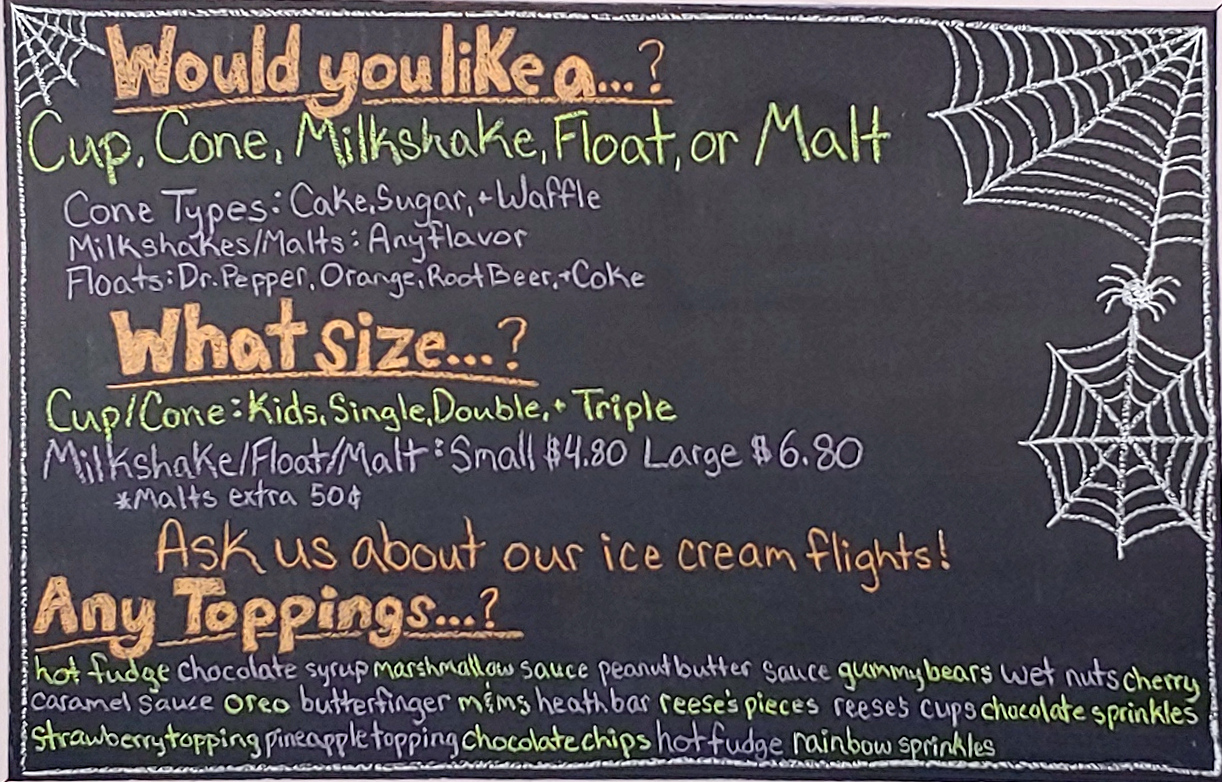 Would you like a...?
Cup, Cone, Milkshake, Float, or Malt
Cone Types: Cake, Sugar, + Waffle
Milkshakes/Malts: Any flavor
Floats: Dr. Pepper, Orange, Root Beer, + Coke
What size...?
Cup/Cone: Kids, Single, Double, + Triple
Milkshake/Float/Malt: Small $4.80 Large $6.80
*Malts extra 50¢
Ask us about our ice cream flights!
Any Toppings...?
hot fudge chocolate syrup marshmallow sauce peanut butter sauce gummy bears wet nuts cherry
caramel sauce oreo butterfinger m&ms heath bar reese's pieces reese's cups chocolate sprinkles
strawberry topping pineapple topping chocolate chips hot fudge rainbow sprinkles